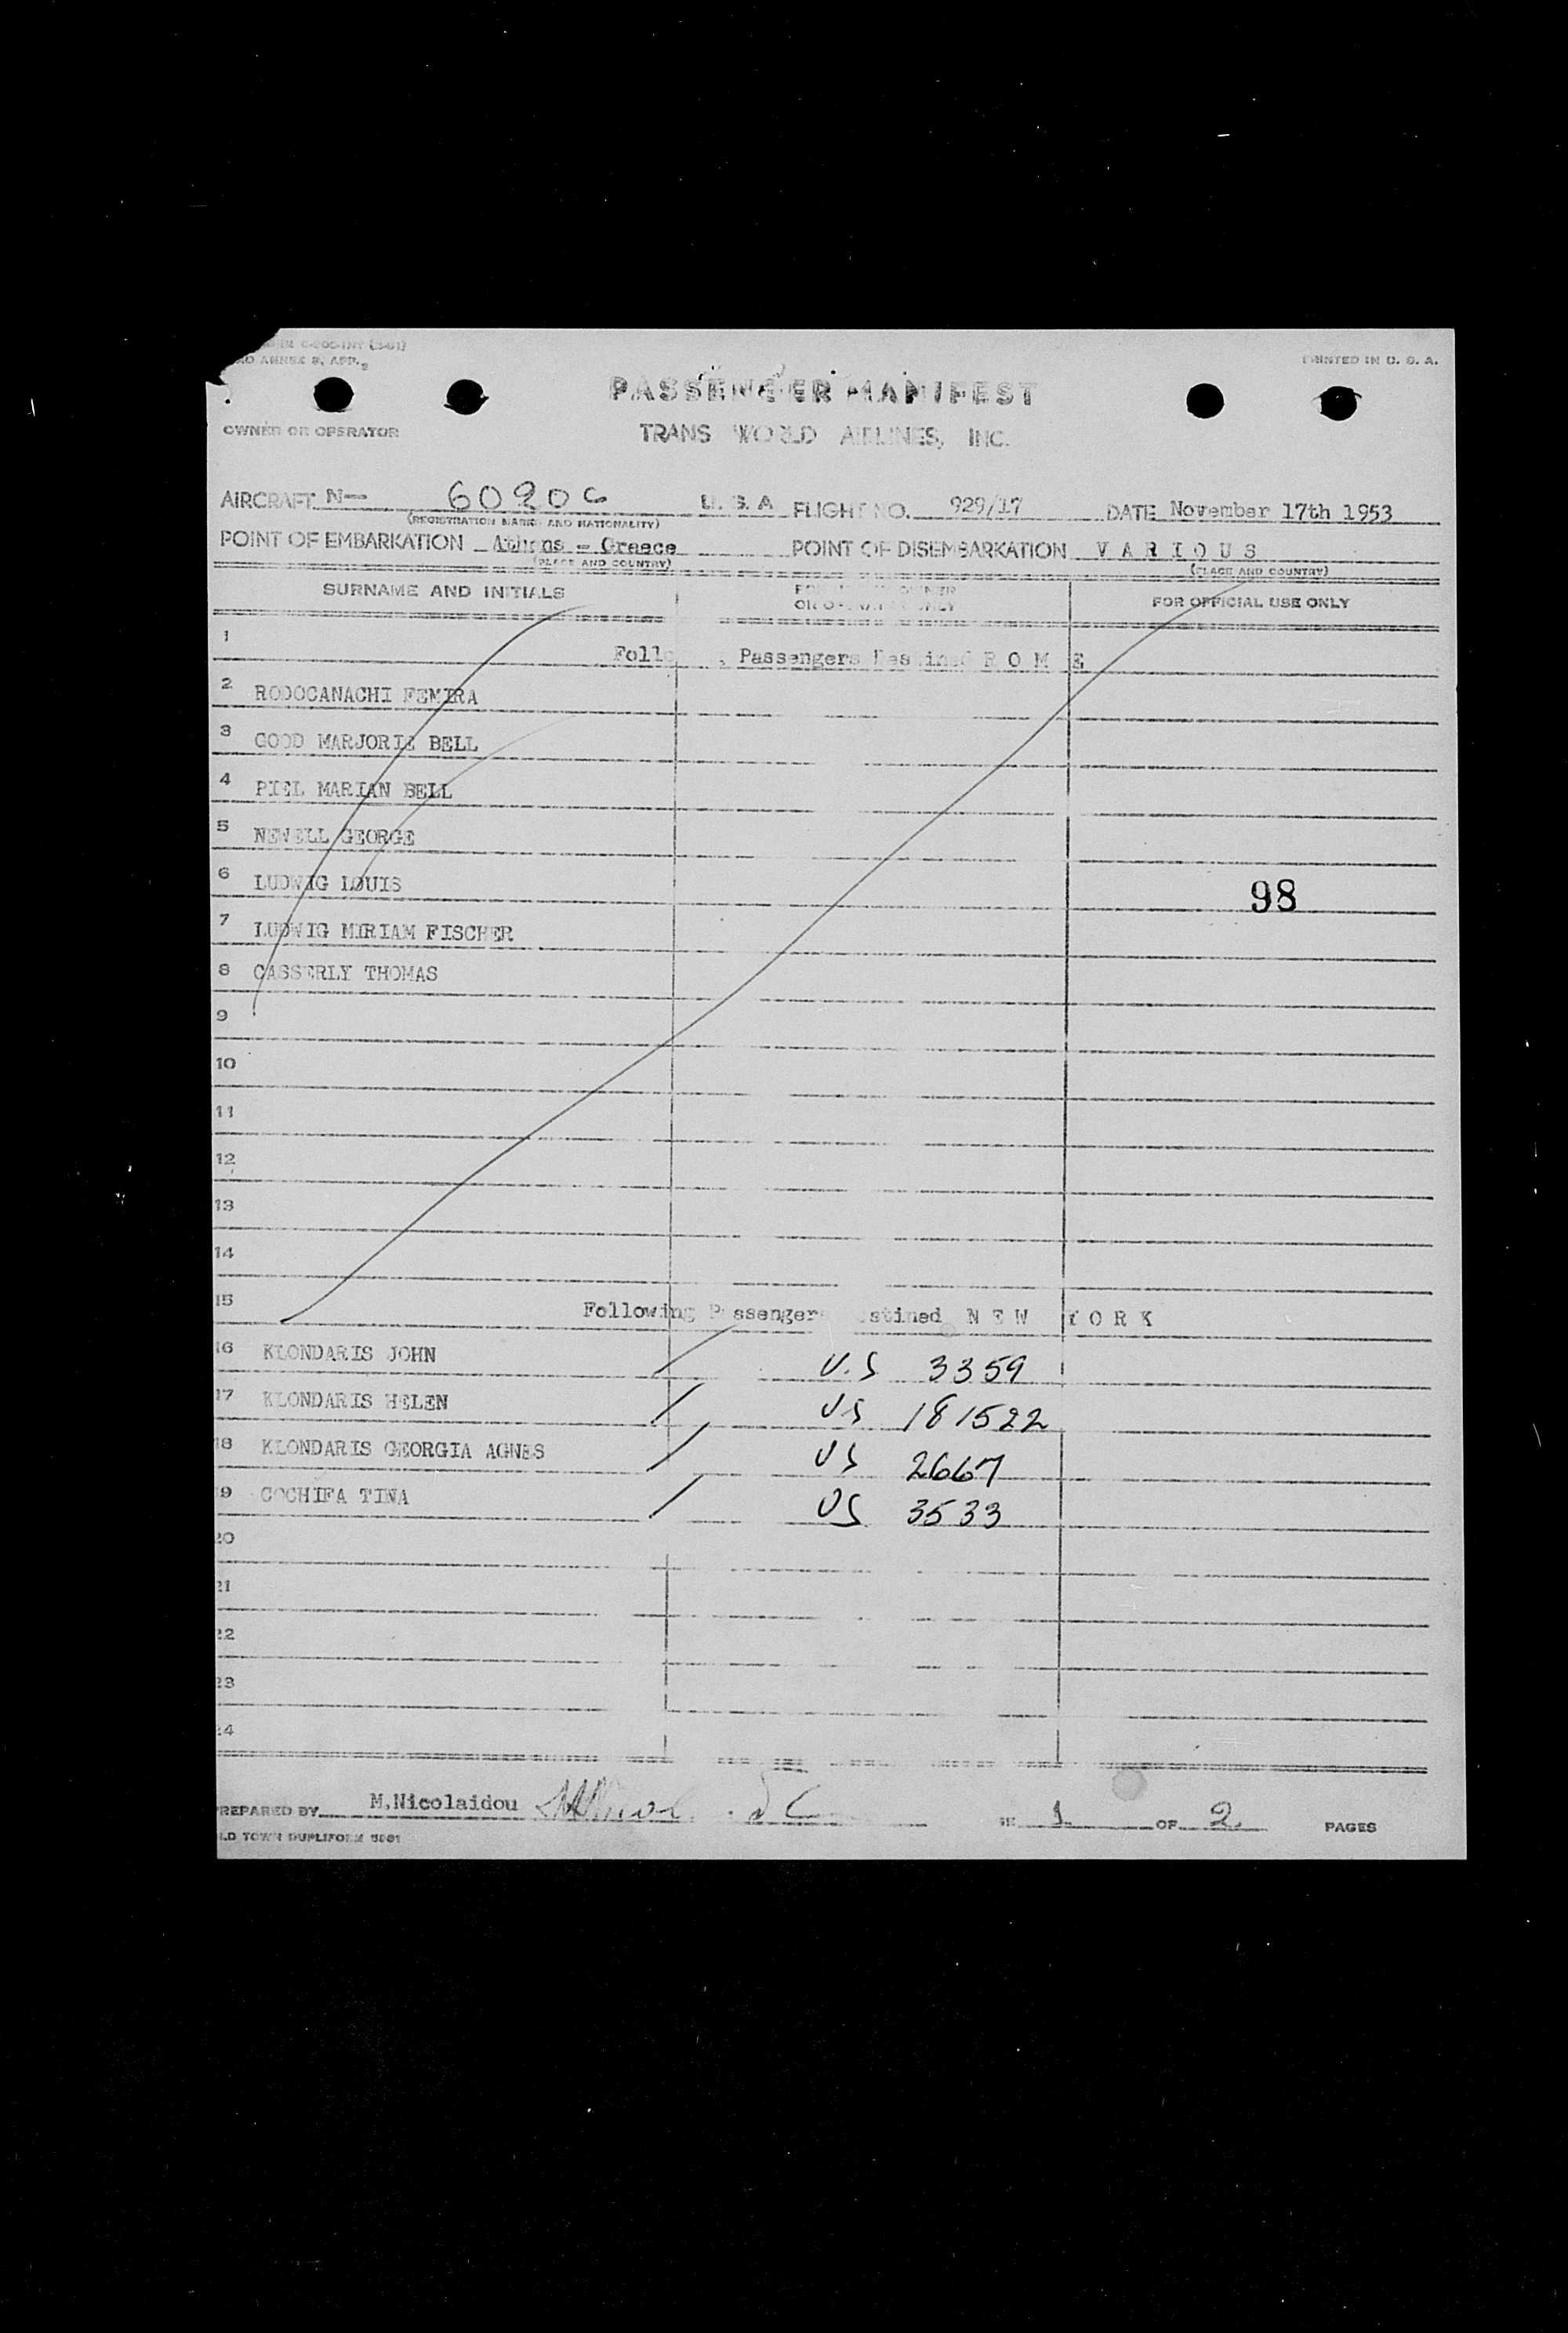 PRINTED IN U. S. A.
PASSENGER MANIFEST
OWNER OR OPERATOR
TRANS WORLD AIRLINES, INC.
AIRCRAFT N— 6020C U. S. A FLIGHT NO. 929/17 DATE November 17th 1953
(REGISTRATION MARKS AND NATIONALITY)
POINT OF EMBARKATION Athens - Greece POINT OF DISEMBARKATION V A R I O U S
(PLACE AND COUNTRY) (PLACE AND COUNTRY)
SURNAME AND INITIALS FOR OFFICIAL USE ONLY
1 Passengers R O M E
2 RODOCANACHI FEMIRA
3 GOOD MARJORIE BELL
4 PIEL MARIAN BELL
5 NEWELL GEORGE
6 LUDWIG LOUIS 98
7 LUDWIG MIRIAM FISCHER
8 CASSERLY THOMAS
9
10
11
12
13
14
15 Following Passengers N E W Y O R K
16 KLONDARIS JOHN U.S 3359
17 KLONDARIS HELEN US 181522
18 KLONDARIS GEORGIA AGNES US 2667
19 COCHIFA TINA US 3533
20
21
22
23
24
PREPARED BY M.Nicolaidou 1 OF 2 PAGES
OLD TOWN DUPLIFORM